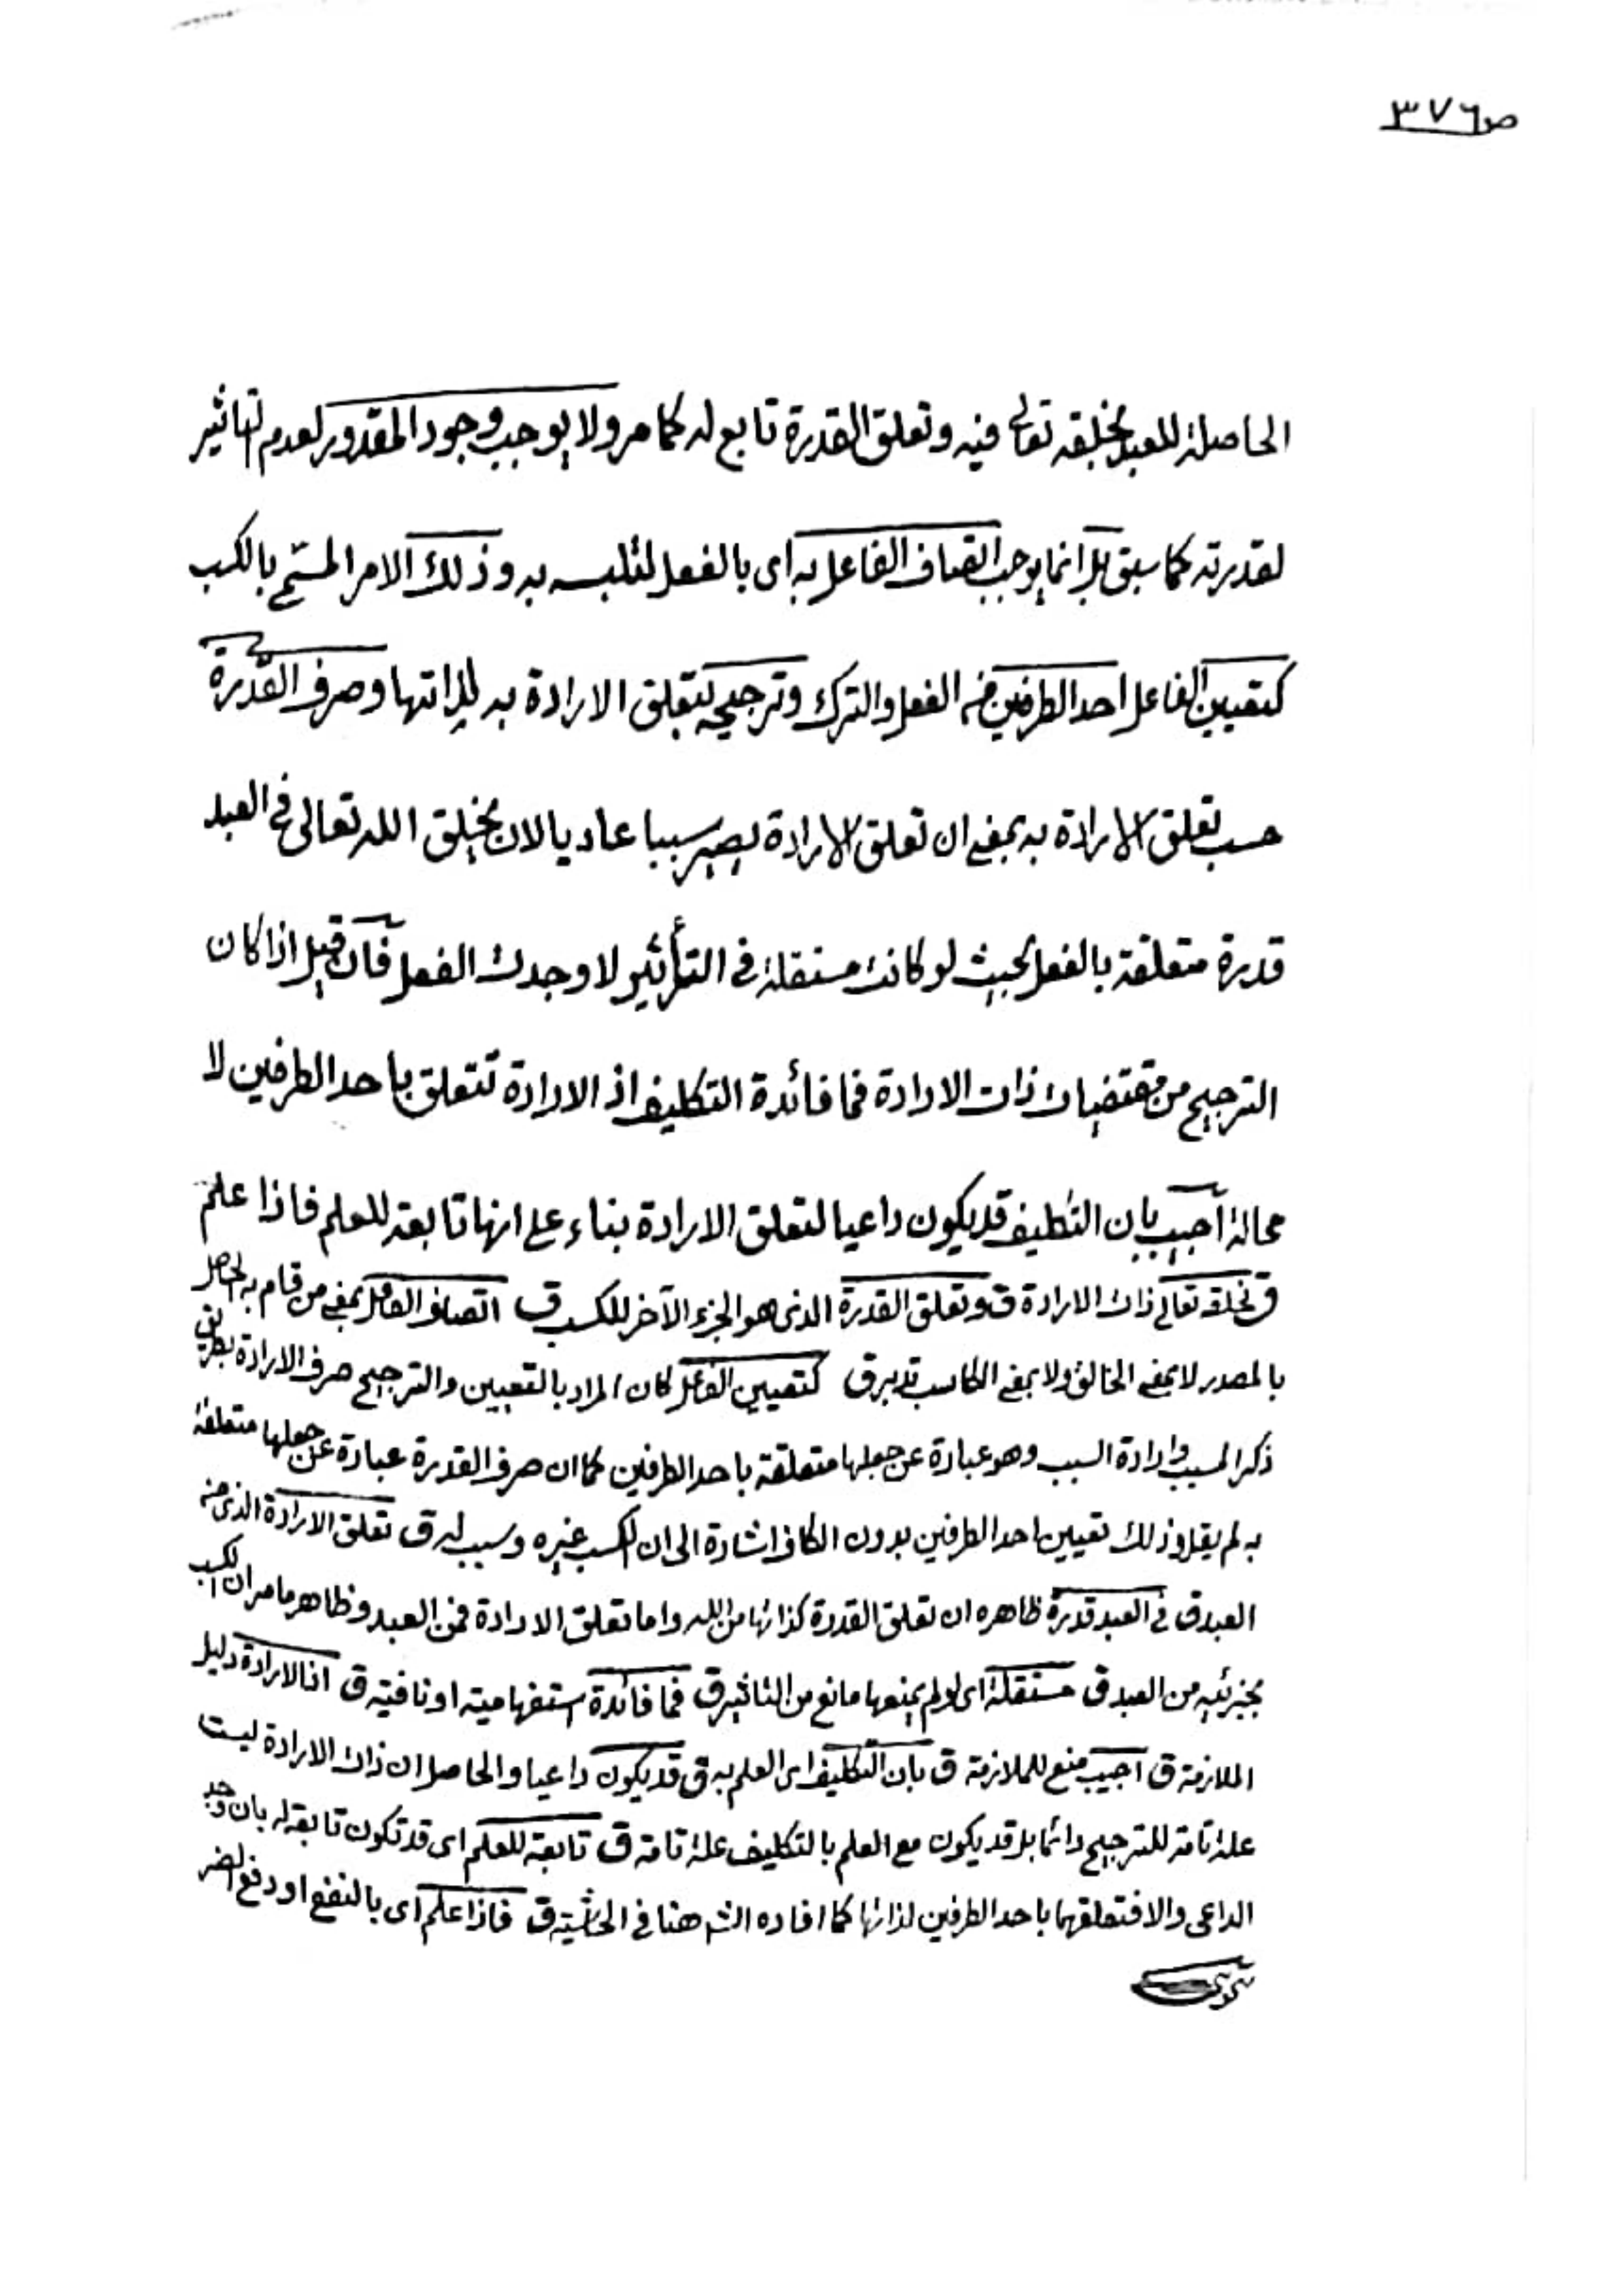 ص٣٧٦
الحاصلة للعبد بخلقه تعالى فيه وتعلق القدرة تابع له كما مر ولا يوجب وجود المقدور لعدم التاثير
لقدرته كما سبق بل انما يوجب اتصاف الفاعل به اى بالفعل لتلبسه به وذلك الامر المسمى بالكسب
كتعيين الفاعل احد الطرفين من الفعل والترك وترجيحه لتعلق الارادة به لذاتها وصرف القدرة
حسب تعلق الارادة به بمعنى ان تعلق الارادة يصير سببا عاديا لان يخلق الله تعالى فى العبد
قدرة متعلقة بالفعل بحيث لو كانت مستقلة فى التأثير لاوجدت الفعل فان قيل اذا كان
الترجيح من مقتضيات ذات الارادة فما فائدة التكليف اذ الارادة تتعلق باحد الطرفين لا
محالة اجيب بان التكليف قد يكون داعيا لتعلق الارادة بناء على انها تابعة للعلم فاذا علم
ق بخلقه تعالى ذات الارادة ق وتعلق القدرة الذى هو الجزء الآخر للكسب ق اتصاف الفاعل بمعنى من قام به الحاصل
بالمصدر لا بمعنى الخالق ولا بمعنى الكاسب تدبر ق كتعيين الفاعل كان المراد بالتعيين والترجيح صرف الارادة بطريق
ذكر المسبب وارادة السبب وهو عبارة عن جعلها متعلقة باحد الطرفين كما ان صرف القدرة عبارة عن جعلها متعلقة
به لم يقل وذلك تعيين احد الطرفين بدون الكاف اشارة الى ان الكسب غيره وسبب له ق تعلق الارادة الذى من
العبد ق فى العبد قدرة ظاهره ان تعلق القدرة كذاتها من الله واما تعلق الارادة فمن العبد وظاهر ما مر ان الكسب
بجزئيه من العبد ق مستقلة اى لو لم يمنعها مانع من التاثير ق فما فائدة استفهامية او نافية ق اذ الارادة دليل
الملازمة ق اجيب منع للملازمة ق بان التكليف اى العلم به ق قد يكون داعيا والحاصل ان ذات الارادة ليست
علة تامة للترجيح دائما بل قد يكون مع العلم بالتكليف علة تامة ق تابعة للعلم اى قد تكون تابعة له بان وجد
الداعى والا فتعلقها باحد الطرفين لذاتها كما افاده الشـ هنا فى الحاشية ق فاذا علم اى بالنفع او دفع الضر